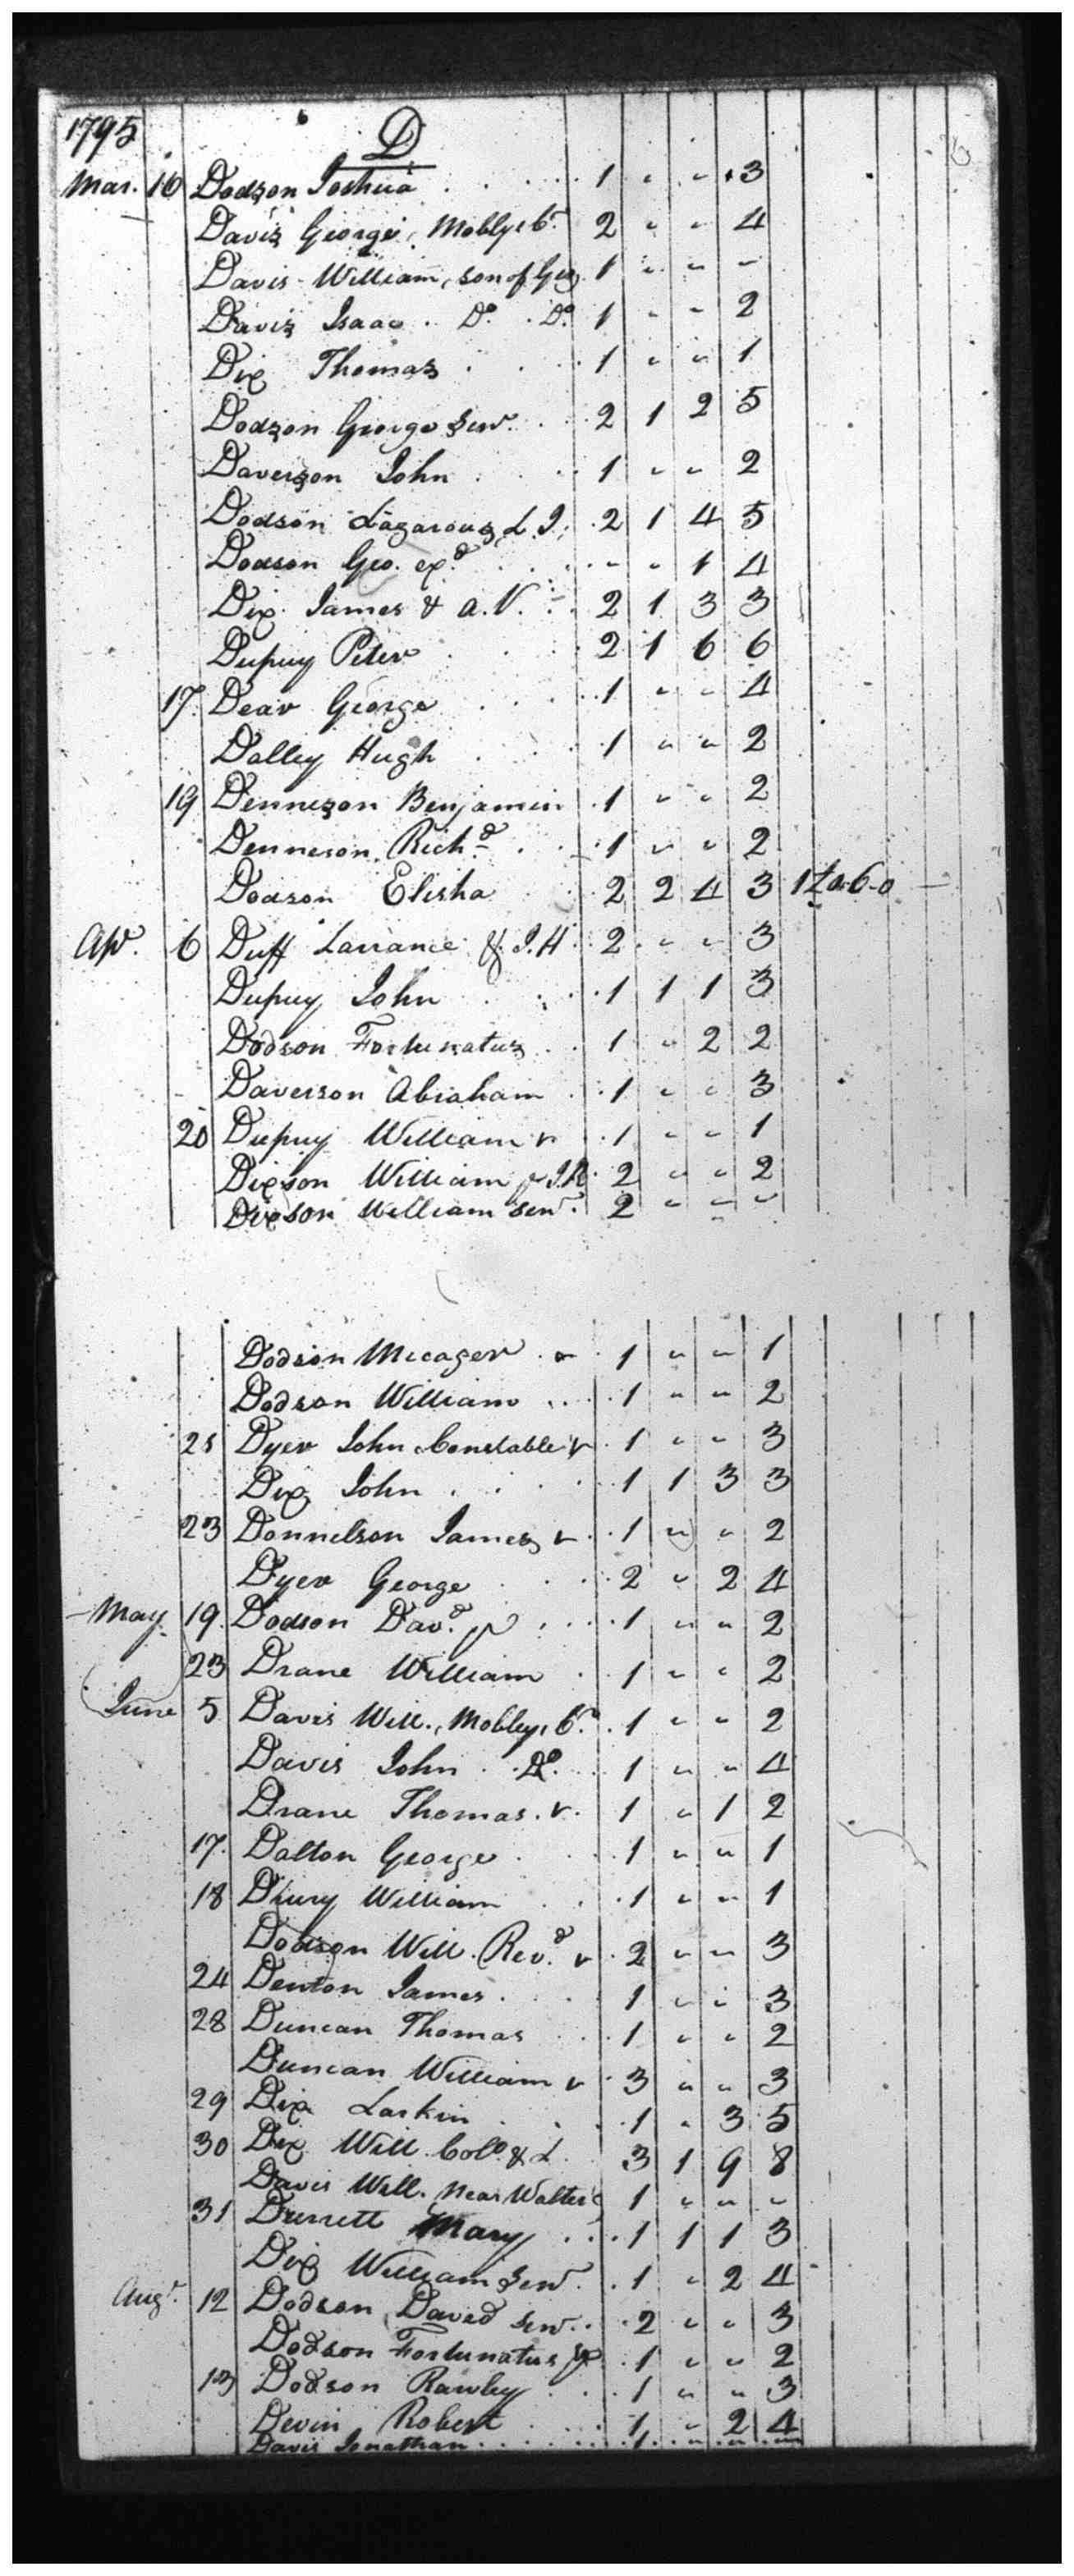 1795 D
Mar. 16 Dodson Joshua 1 " " 3
Davis George, Mobly, C. 2 " " 4
Davis William, son of Geo 1 " " "
Davis Isaac Do. Do. 1 " " 2
Dix Thomas 1 " " 1
Dodson George Senr. 2 1 2 5
Daverson John 1 " " 2
Dodson Lazarous, L. J. 2 1 4 5
Dodson Geo. exd. " " 1 4
Dix James & A.V. 2 1 3 3
Dupuy Peter 2 1 6 6
17. Dear George 1 " " 4
Dalley Hugh 1 " " 2
19 Denneson Benjamin 1 " " 2
Denneson Richd. 1 " " 2
Dodson Elisha 2 2 4 3
Apr. 6 Duff Larrance & J. H 2 " " 3
Dupuy John 1 1 1 3
Dodson Fortunatus 1 " 2 2
Daverson Abraham 1 " " 3
20 Dupuy William v 1 " " 1
Dixson William 2 " " 2
Dixson William Senr. 2 " " "
Dodson Micager 1 " " 1
Dodson William 1 " " 2
21 Dyer John Constable v 1 " " 3
Dix John 1 1 3 3
23 Donnelson James v 1 " " 2
Dyer George 2 " 2 4
May 19. Dodson Davd. 1 " " 2
23 Drane William 1 " " 2
June 5 Davis Will., Mobley, C. 1 " " 2
Davis John Do. 1 " " 4
Drane Thomas. v. 1 " 1 2
17. Dalton George 1 " " 1
18 Drury William 1 " " 1
Dodson Will. Revd. v 2 " " 3
24 Denton James 1 " " 3
28 Duncan Thomas 1 " " 2
Duncan William v 3 " " 3
29 Dix Larkin 1 " 3 5
30 Dix Will. Colo. & L. 3 1 9 8
Davis Will. Near Walters 1 " " "
31 Durrett Mary 1 1 1 3
Dix William Senr. 1 " 2 4
Augt. 12 Dodson David Senr. 2 " " 3
Dodson Fortunatus 1 " " 2
13 Dodson Rawley 1 " " 3
Devin Robert 1 " 2 4
Davis Jonathan 1 " " "